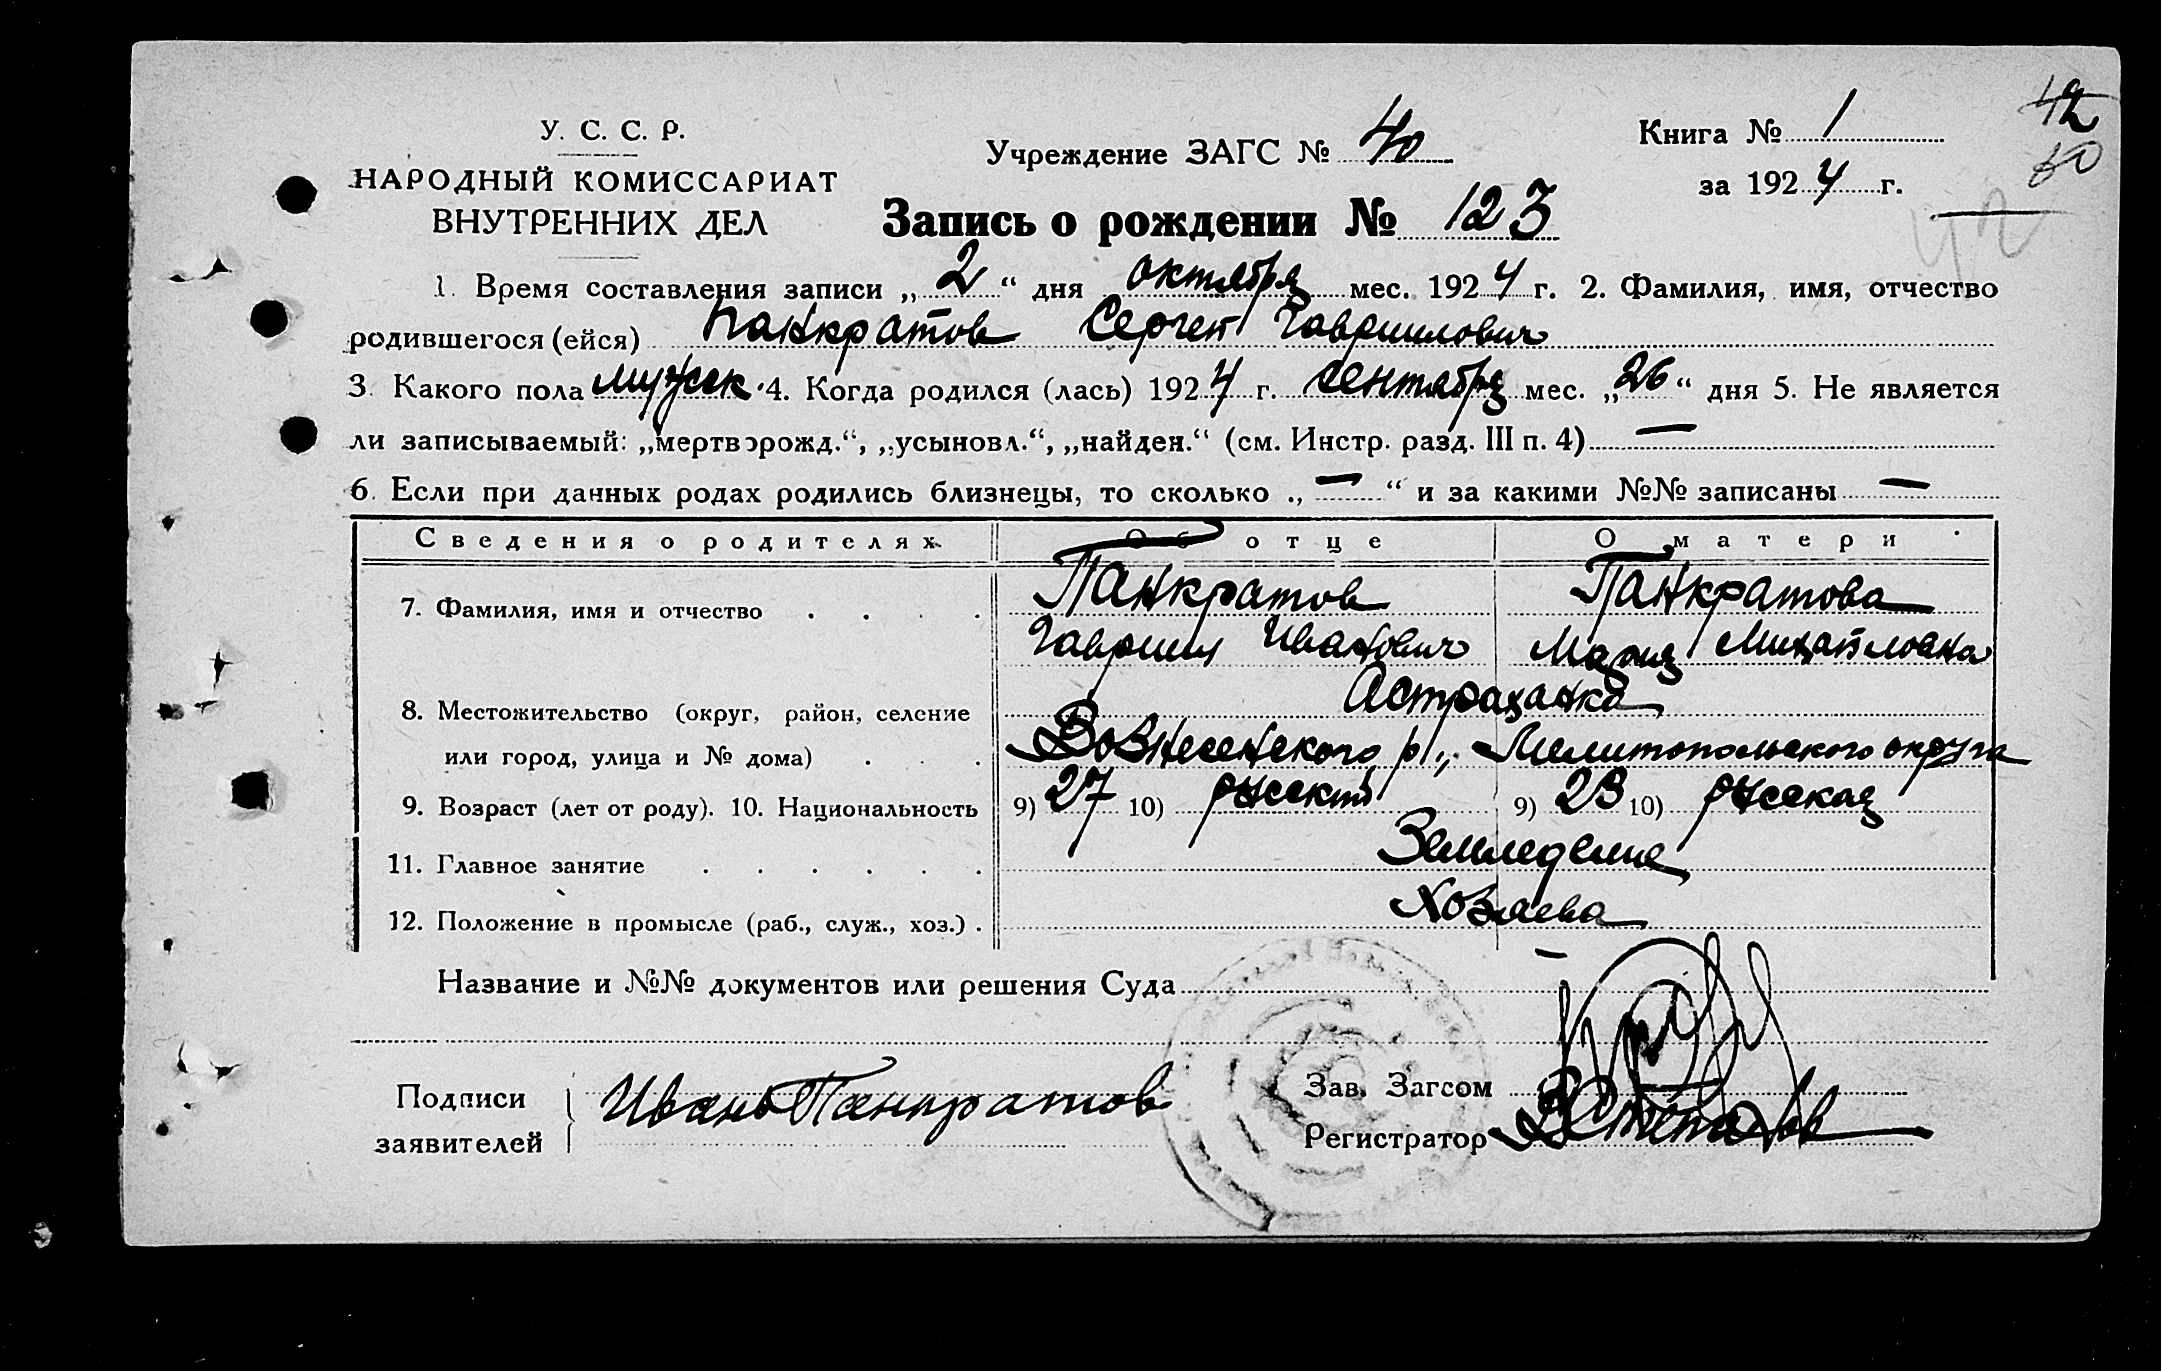 42
60
42
У. С. С. Р.
НАРОДНЫЙ КОМИССАРИАТ
ВНУТРЕННИХ ДЕЛ
Учреждение ЗАГС № 40
Книга № 1
за 1924 г.
Запись о рождении № 123
1. Время составления записи „2“ дня октября мес. 1924 г. 2. Фамилия, имя, отчество
родившегося (ейся) Панкратов Сергей Гавриилович
3. Какого пола мужск. 4. Когда родился (лась) 1924 г. сентября мес. „26“ дня 5. Не является
ли записываемый: „мертворожд.“, „усыновл.“, „найден.“ (см. Инстр. разд. III п. 4) —
6. Если при данных родах родились близнецы, то сколько „—“ и за какими №№ записаны —
Сведения о родителях Об отце О матери
7. Фамилия, имя и отчество . . . . Панкратов Панкратова
Гавриил Иванович Мария Михайловна
8. Местожительство (округ, район, селение Астраханка
или город, улица и № дома) . . . Вознесенского р., Мелитопольского округа
9. Возраст (лет от роду). 10. Национальность 9) 27 10) русский 9) 23 10) русская
11. Главное занятие . . . . . . Земледелие
12. Положение в промысле (раб., служ., хоз.) . Хозяева
Название и №№ документов или решения Суда —
Подписи
заявителей
Иван Панкратов
Зав. Загсом
Регистратор В Степанов